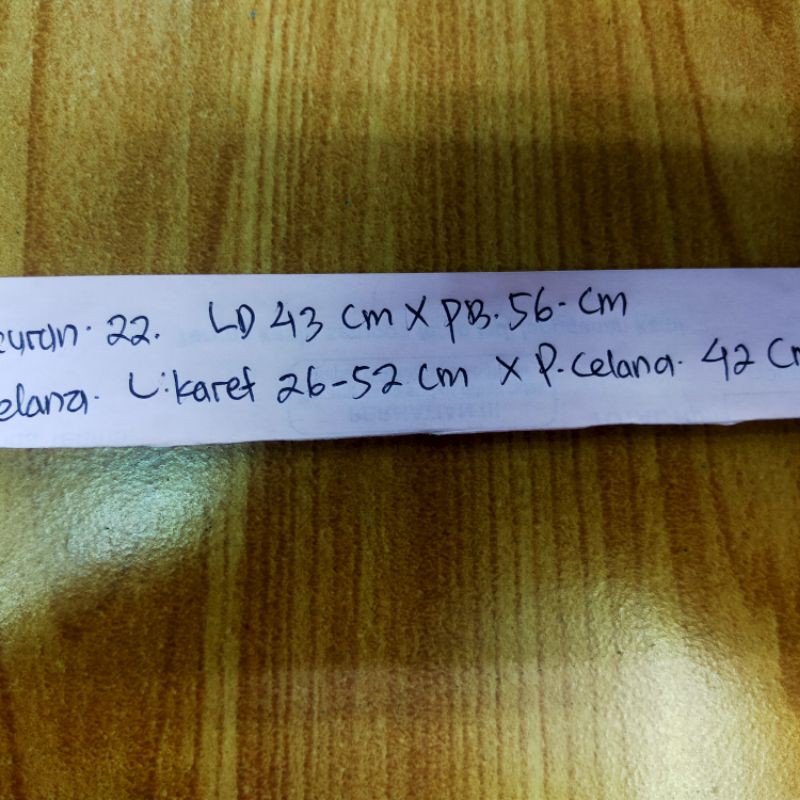 kuran. 22. LD 43 cm X PB. 56. cm
elana. L: karet 26-52 cm X P. celana. 42 Cm